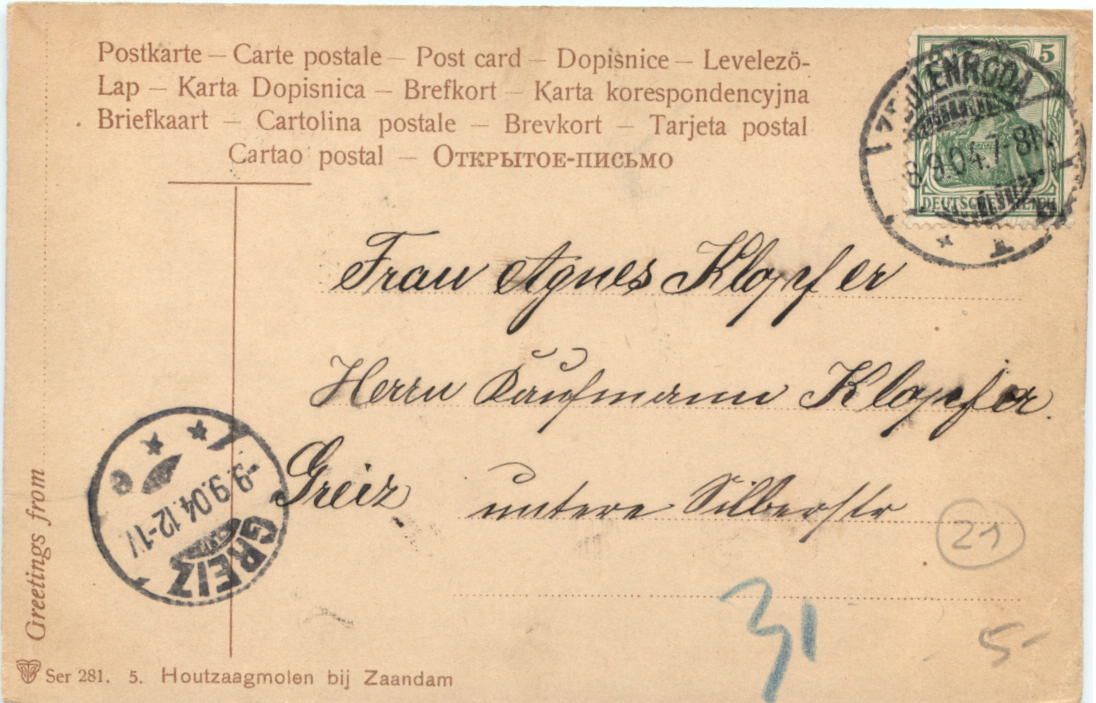 Postkarte – Carte postale – Post card – Dopisnice – Levelezö-
Lap – Karta Dopisnica – Brefkort – Karta korespondencyjna
Briefkaart – Cartolina postale – Brevkort – Tarjeta postal
Cartao postal – Открытое-письмо
5
ZEULENRODA
8.9.04.7-8N.
DEUTSCHES REICH
Frau Agnes Klopfer
Herrn Kaufmann Klopfer.
Greiz
untere Silberstr
-9.9.04.12-1
GREIZ
21
31
5-
Greetings from
Ser 281. 5. Houtzaagmolen bij Zaandam